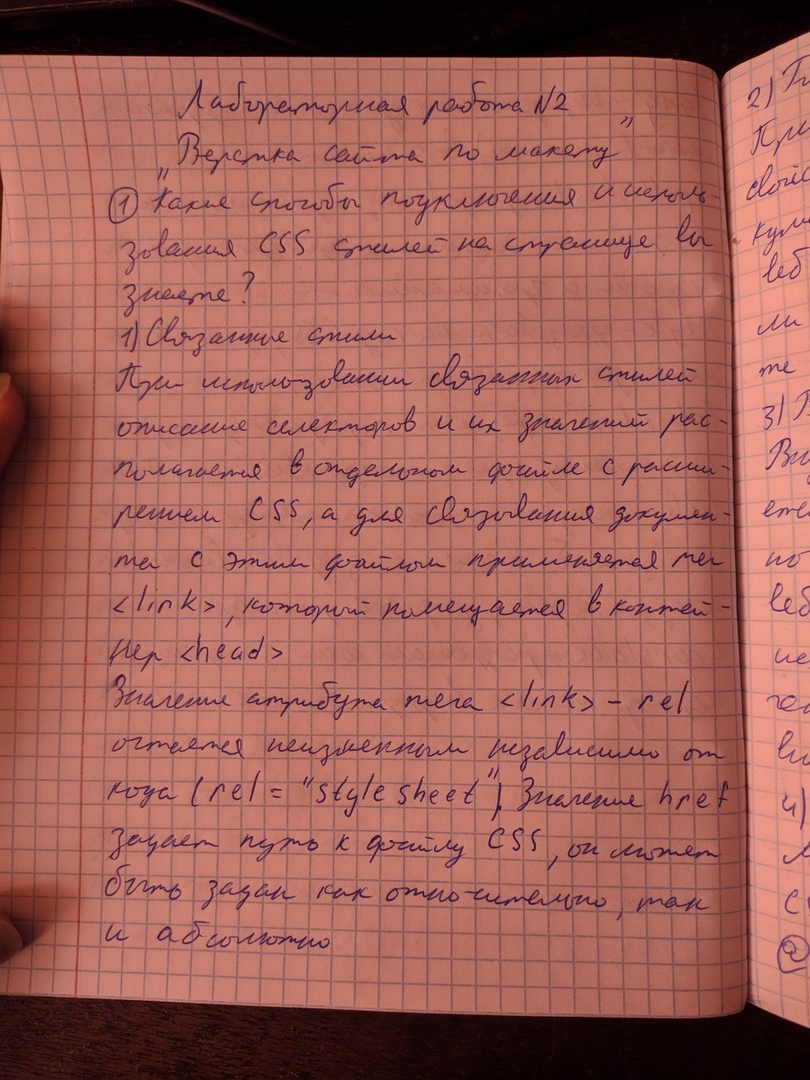 Лабораторная работа N2
„Верстка сайта по макету”
① Какие способы подключения и исполь-
зования CSS стилей на странице вы
знаете?
1) Связанные стили
При использовании связанных стилей
описание селекторов и их значений рас-
полагается в отдельном файле с расши-
рением CSS, а для связывания докумен-
та с этим файлом применяется тег
<link>, который помещается в контей-
нер <head>
Значение атрибута тега <link> - rel
остаётся неизменным независимо от
кода (rel = "stylesheet"). Значение href
задает путь к файлу CSS, он может
быть задан как относительно, так
и абсолютно
2)
При
свойс
веб
ли
же
3)
но
веб
4)
②